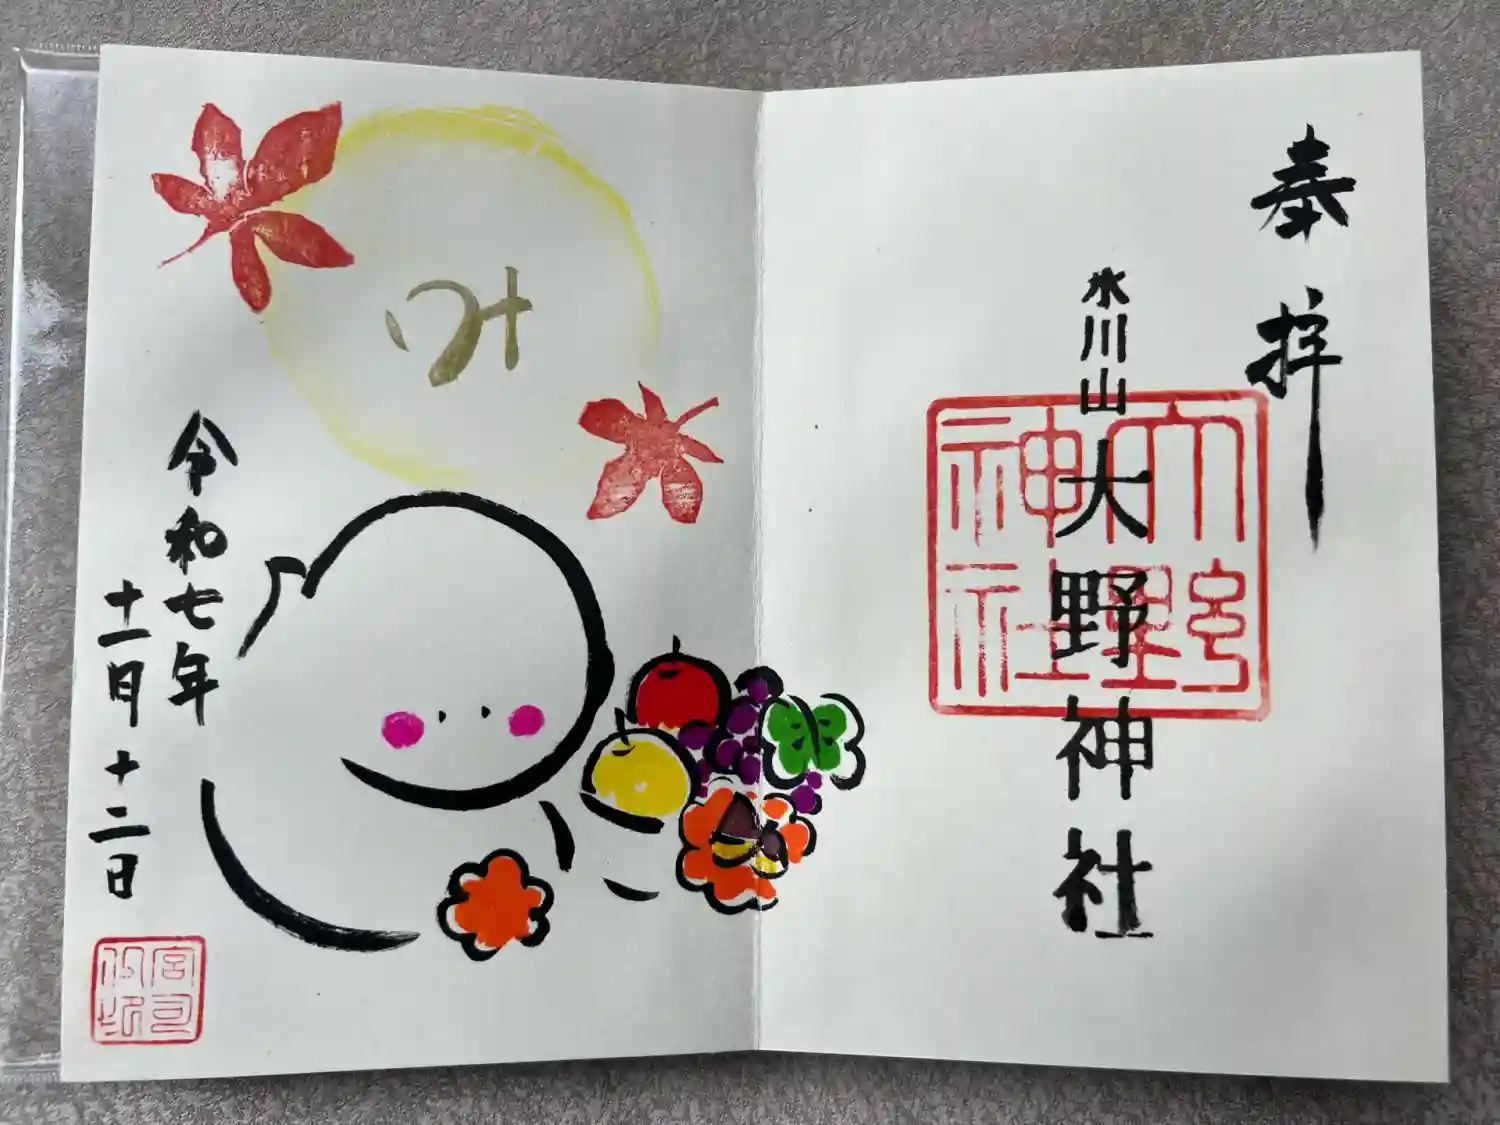 奉拝
氷川山
大野神社
大野神社
み
令和七年
十一月十二日
宮司